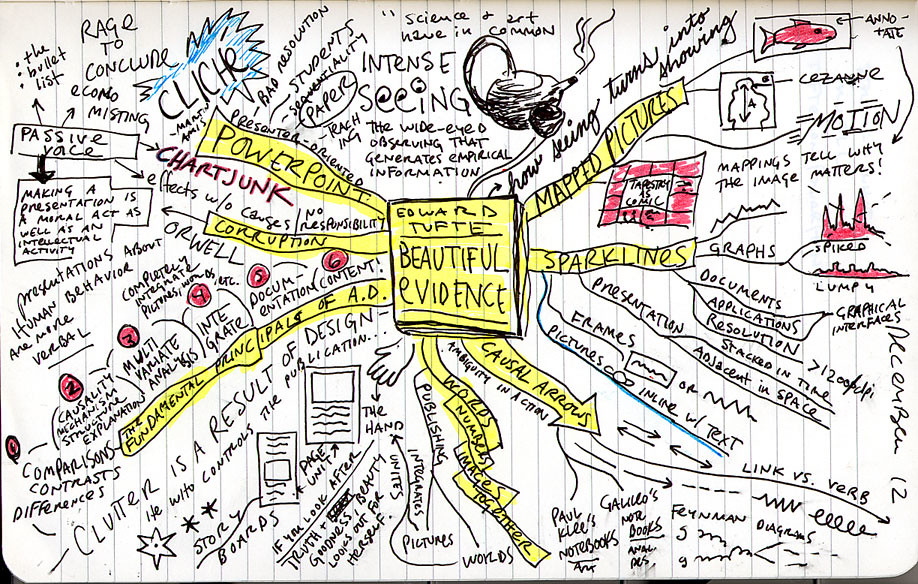 : the
: bullet
: list
RAGE
TO
CONCLUDE
ECONO
MISTING
PASSIVE
VOICE
MAKING A
PRESENTATION IS
A MORAL ACT AS
WELL AS AN
INTELLECTUAL
ACTIVITY
CLICHE
BAD RESOLUTION
STUDENTS
SEQUENTIALITY
PAPER
PRESENTER-ORIENTED
POWERPOINT
CHARTJUNK
effects w/o causes
NO
RESPONSIBILITY
CORRUPTION
ORWELL
"science & art
have in common
INTENSE
SEEING
TEACH
ING
THE WIDE-EYED
OBSERVING THAT
GENERATES EMPIRICAL
INFORMATION
how seeing turns into
showing
MAPPED PICTURES
ANNO-
TATE
CEZANNE
A
MOTION
MAPPINGS TELL WHY
THE IMAGE MATTERS!
TAPESTRY
AS
COMIC
EDWARD
TUFTE
BEAUTIFUL
EVIDENCE
SPARKLINES
GRAPHS
SPIKED
LUMPY
DOCUMENTS
APPLICATIONS
GRAPHICAL
INTERFACES
RESOLUTION
>1200 dpi
PRESENTATION
STACKED IN TIME
ADJACENT IN SPACE
FRAMES
OR
PICTURES
INLINE w/ TEXT
presentations about
HUMAN BEHAVIOR
are more
VERBAL
THE
FUNDAMENTAL PRINCIPALS OF A.D.
1
COMPARISONS
CONTRASTS
DIFFERENCES
2
CAUSALITY
MECHANISM
STRUCTURE
EXPLANATION
3
MULTI
VARIATE
ANALYSIS
4
COMPLETELY
INTEGRATE
PICTURES, WORDS, ETC.
INTE
GRATE
5
DOCUM
ENTATION
6
CONTENT!
CLUTTER IS A RESULT OF DESIGN
He who CONTROLS THE PUBLICATION..
STORY
BOARDS
PAGE
UNIT
THE
HAND
IF YOU LOOK AFTER
TRUTH &
GOODNESS, BEAUTY
LOOKS OUT FOR
HERSELF.
PUBLISHING
UNITES
INTEGRATES
PICTURES
WORLDS
WORDS
NUMBERS
IMAGES
TOGETHER
CAUSAL ARROWS
AMBIGUITY IN ACTION
PAUL
KLEE'S
NOTEBOOKS
ART
GALILEO'S
NOTE
BOOKS
LINK VS. VERB
FEYNMAN DIAGRAMS
DECEMBER 12